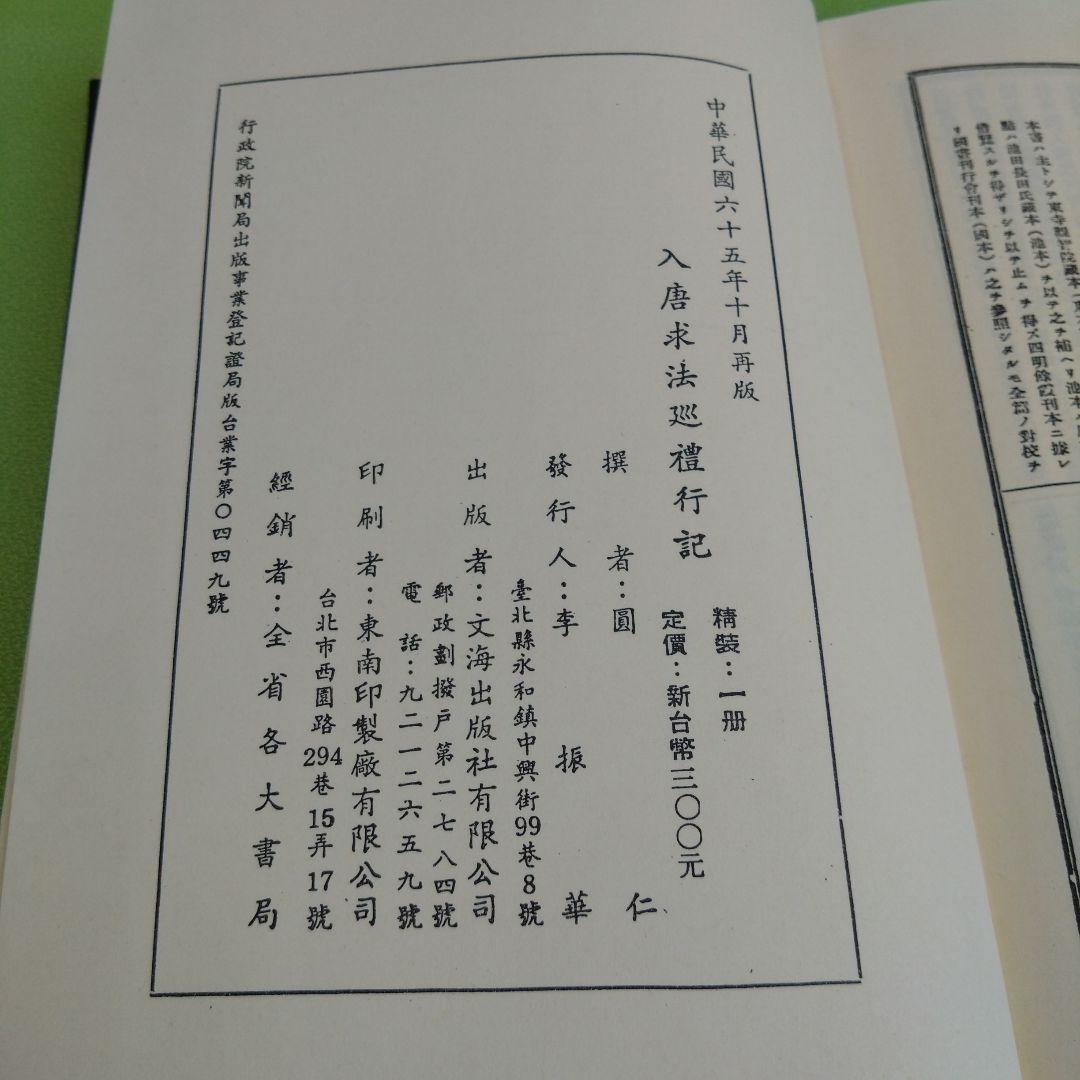 中華民國六十五年十月再版
入唐求法巡禮行記
精裝：一册
定價：新台幣三〇〇元
撰者：圓仁
發行人：李振華
臺北縣永和鎮中興街99巷8號
出版者：文海出版社有限公司
郵政劃撥戶第二七八四號
電話：九二一二六五九號
印刷者：東南印製廠有限公司
台北市西園路294巷15弄17號
經銷者：全省各大書局
行政院新聞局出版事業登記證局版台業字第〇四四九號
本書ハ主トシテ東寺觀智院藏本
點ハ池田長田氏藏本（池本）ヲ以テ之ヲ補ヘリ池本
借覽スルヲ得ザリシヲ以テ止ムヲ得ズ四明餘霞刊本ニ據レ
リ國書刊行會刊本（國本）ハ之ヲ參照シタルモ全篇ノ對校ヲ